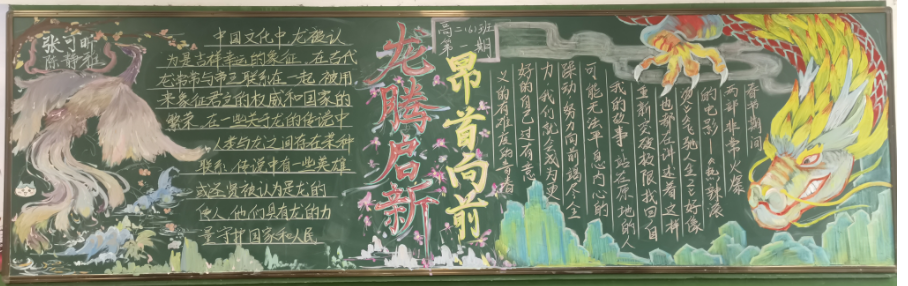 张可昕
陈静雅
中国文化中,龙被认
为是吉祥幸运的象征,在古代
龙常常与帝王联系在一起,被用
来象征君主的权威和国家的
繁荣,在一些关于龙的传说中
人类与龙之间存在某种
联系,传说中有一些英雄
或圣贤被认为是龙的
使人,他们具有龙的力
量守护国家和人民
龙腾启新
高二(6)班
第一期
昂首向前
春节期间
两部非常火爆
的电影——《热辣滚
烫》《飞驰人生2》好像
也都在讲述着这样
重新突破极限,找回自
我的故事。站在原地的人
可能无法平息内心的
躁动,努力向前竭尽全
力,我们就会成为更
好的自己,过有意
义的有难度的